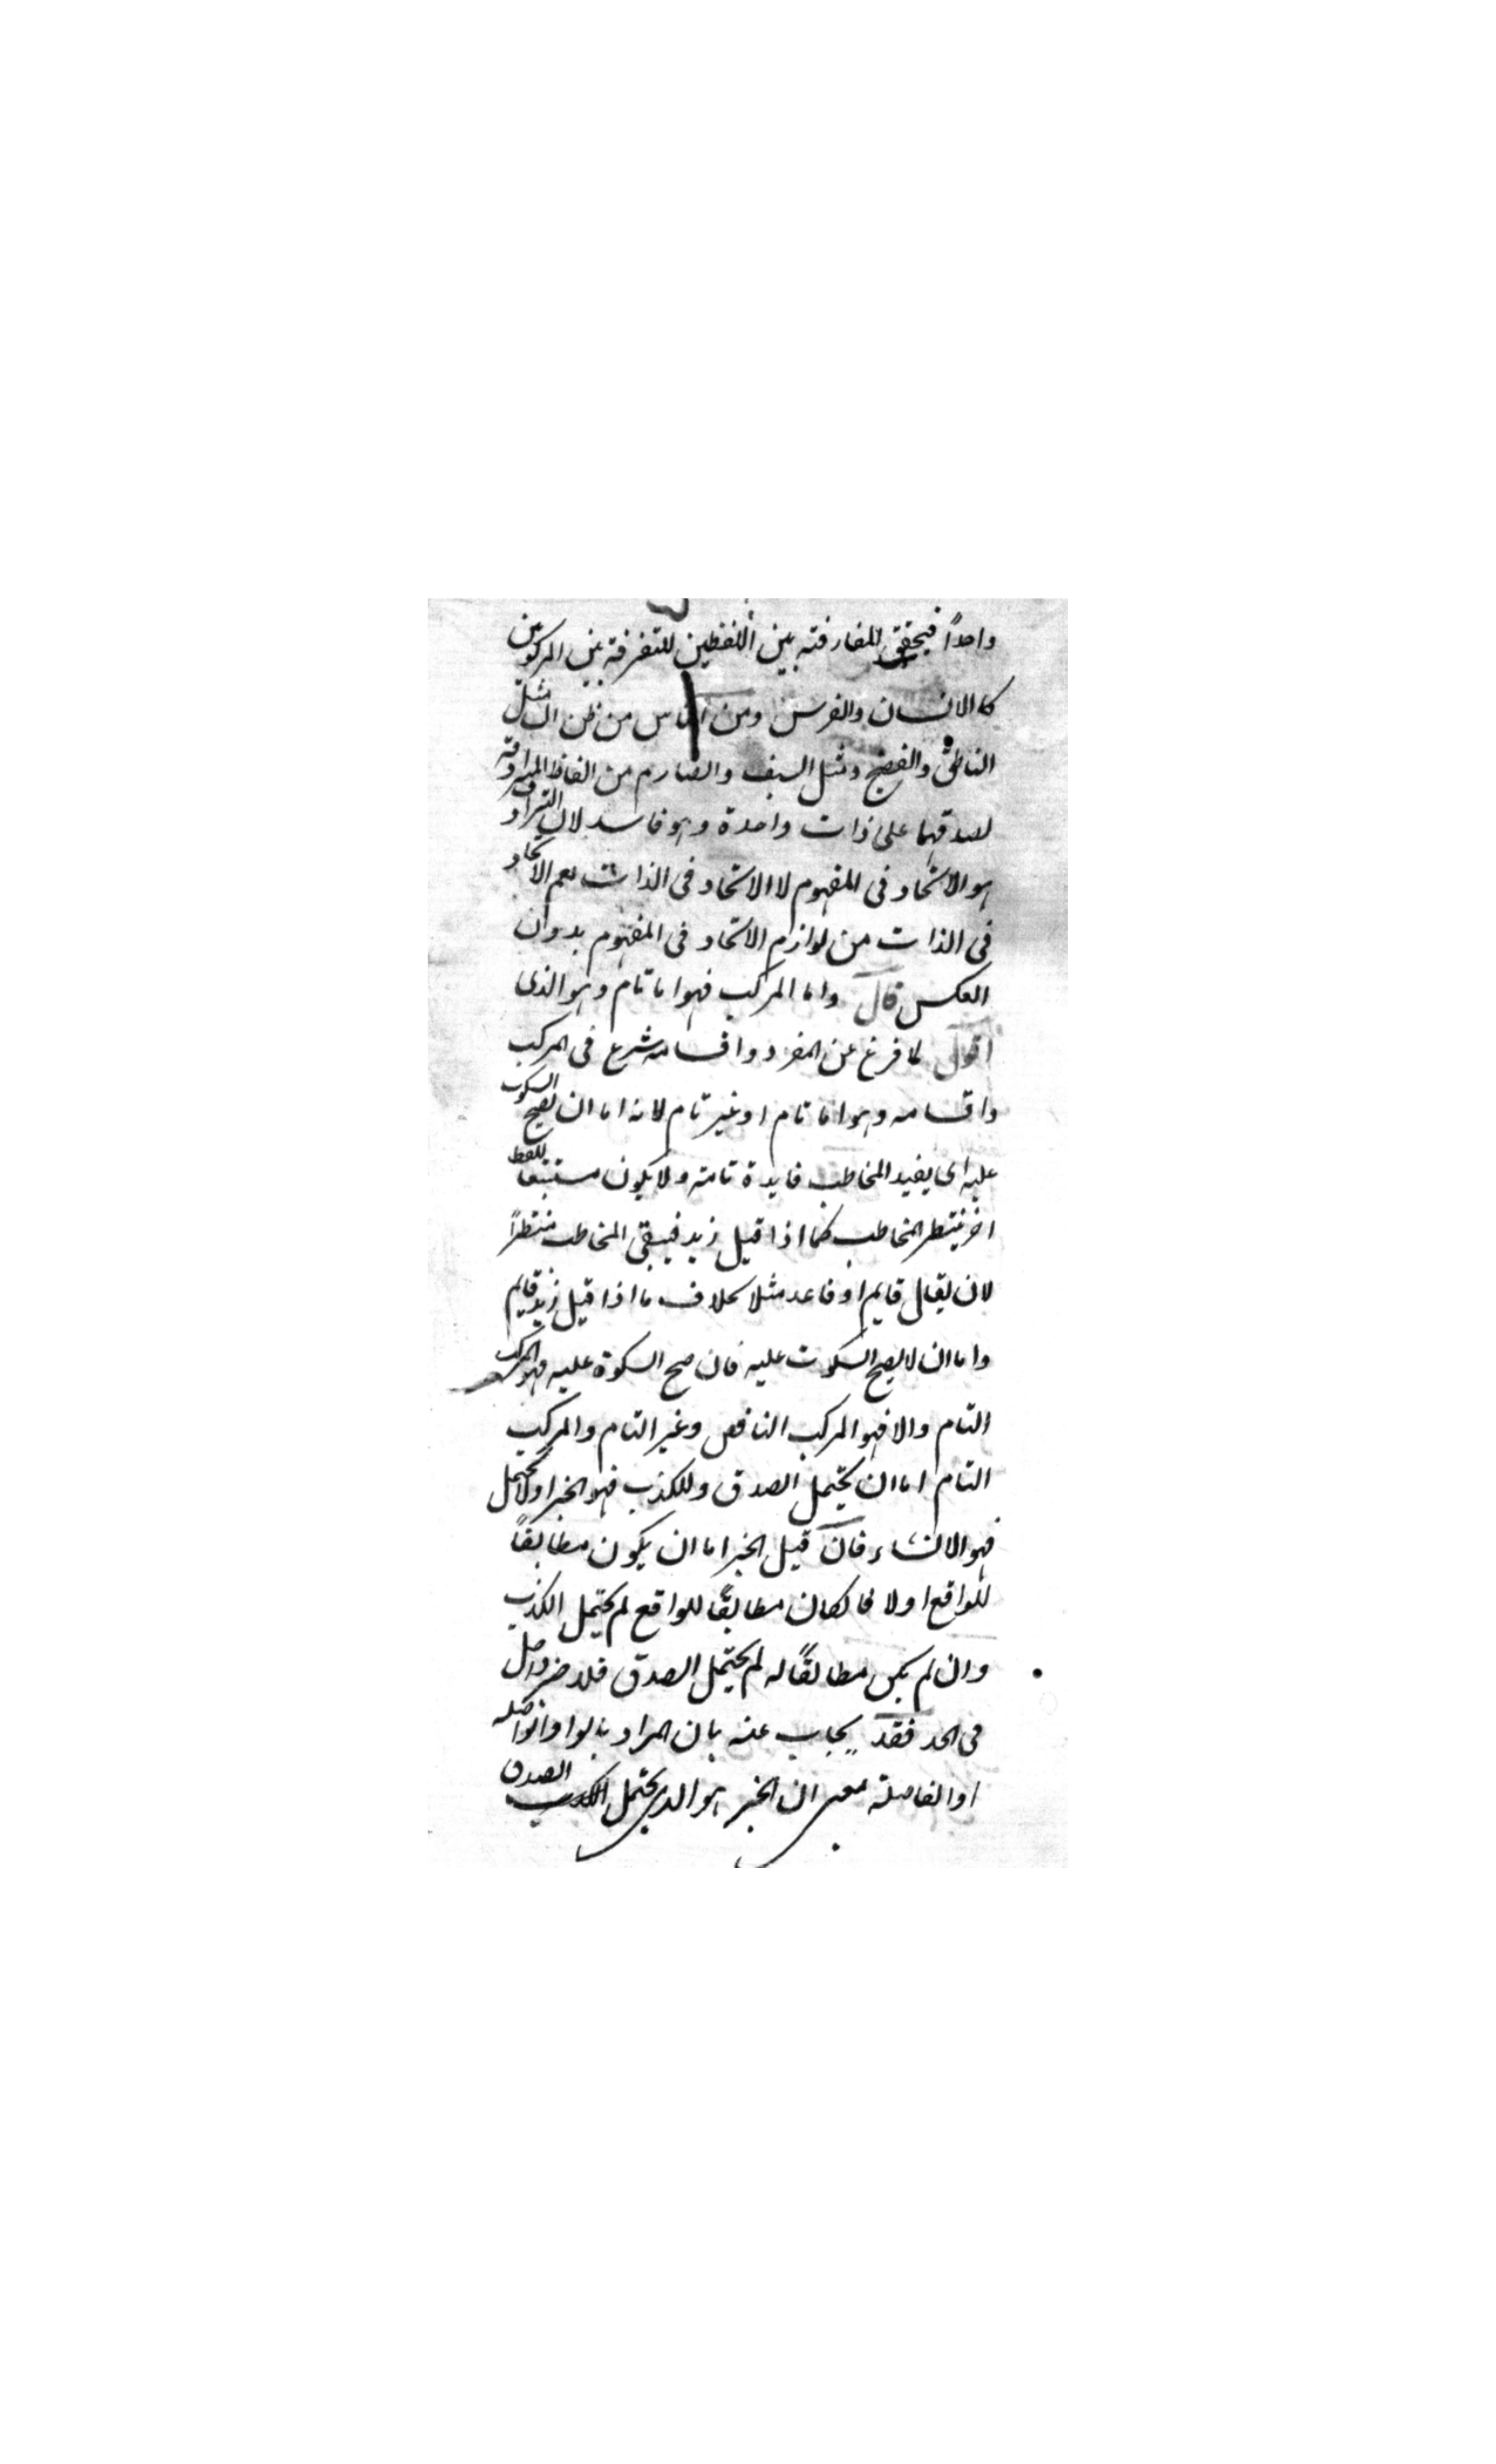 واحداً فيحقق المفارقة بين اللفظين للتفرقة بين المركوبين
كالانسان والفرس ومن الناس من ظن ان مثل
الناطق والفصيح ومثل السيف والصارم من الفاظ المترادفة
لصدقهما على ذات واحدة وهو فاسد لان الترادف
هو الاتحاد فى المفهوم لا الاتحاد فى الذات نعم الاتحاد
فى الذات من لوازم الاتحاد فى المفهوم بدون
العكس قال واما المركب فهو اما تام وهو الذى
اقول لما فرغ عن المفرد واقسامه شرع فى المركب
واقسامه وهو اما تام او غير تام لانه اما ان يصح السكوت
عليه اى يفيد المخاطب فايدة تامة ولا يكون مستتبعا للفظ
اخر ينتظر المخاطب كما اذا قيل زيد فيبقى المخاطب منتظراً
لان يقال قايم او قاعد مثلا بخلاف ما اذا قيل زيد قايم
واما ان لا يصح السكوت عليه فان صح السكوة عليه فهو المركب
التام والا فهو المركب الناقص وغير التام والمركب
التام اما ان يحتمل الصدق والكذب فهو الخبر او لا يحتمل
فهو الانشاء فان قيل الخبر اما ان يكون مطابقاً
للواقع او لا فا كان مطابقاً للواقع لم يحتمل الكذب
وان لم يكن مطابقاً له لم يحتمل الصدق فلا خبر داخل
فى الحد فقد يجاب عنه بان المراد بالواو الواصلة
او الفاصلة بمعنى ان الخبر هو الذى يحتمل الصدق